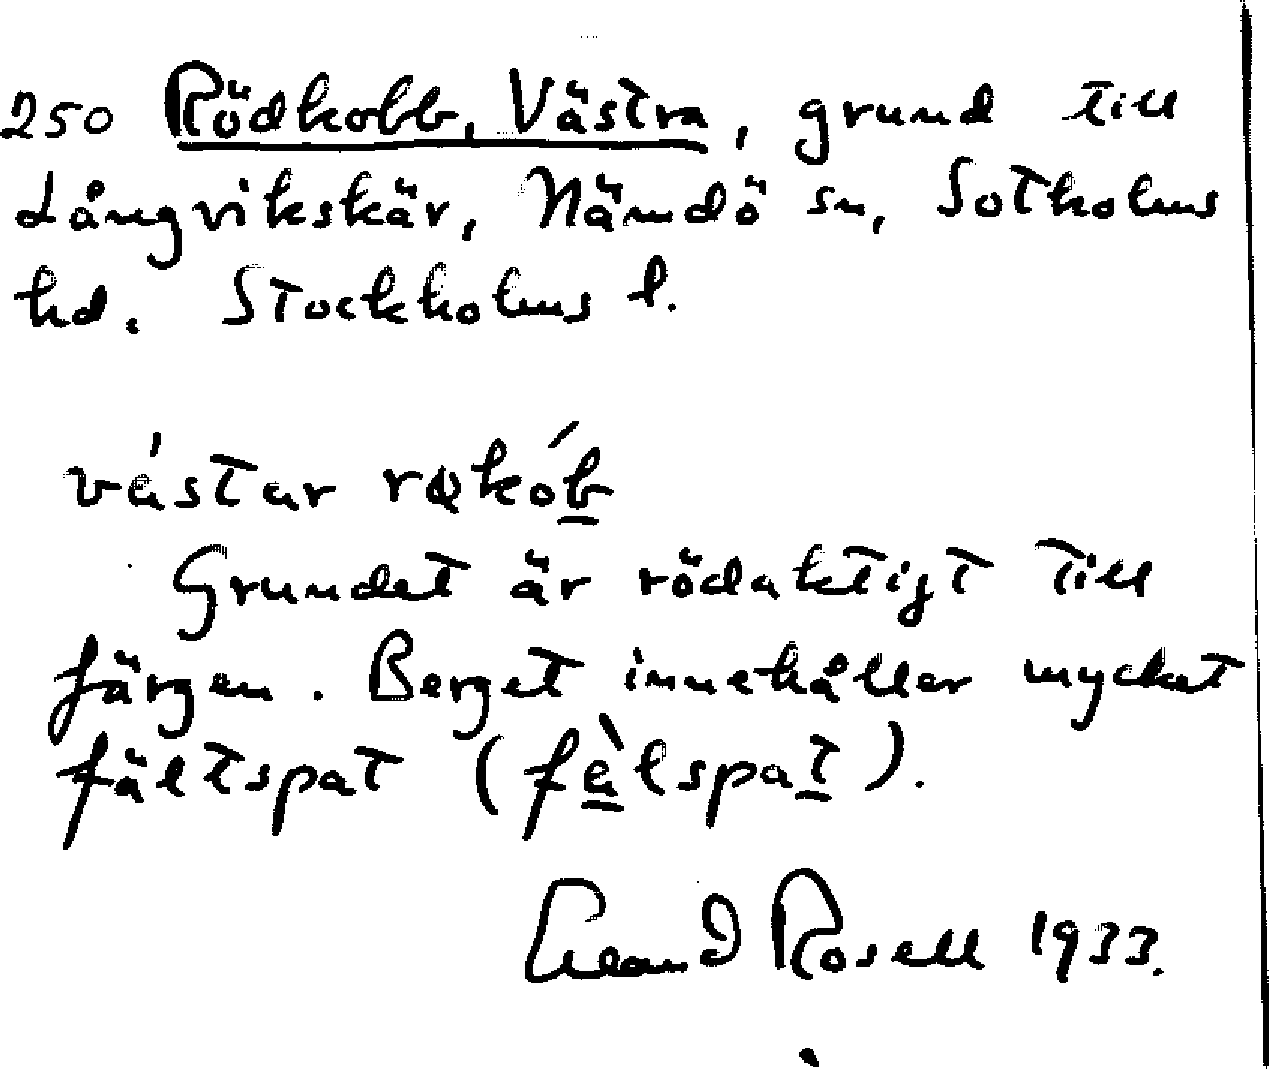 250 Rödkobb, Västra, grund till
Långvikskär, Nämdö sn, Sotholms
hd. Stockholms l.
västar røkób
Grundet är rödaktigt till
färgen. Berget innehåller mycket
fältspat (fàlspat).
Rosell 1933.